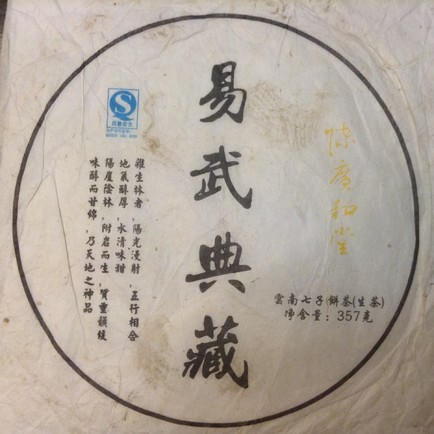 陳廣和堂
易武典藏
雜生林者，陽光漫射，五行相合
地氣醇厚，水清味甜
陽崖陰林，附岩而生，質重韻緩
味醇而甘綿，乃天地之神品
雲南七子餅茶(生茶)
净含量：357克
质量安全